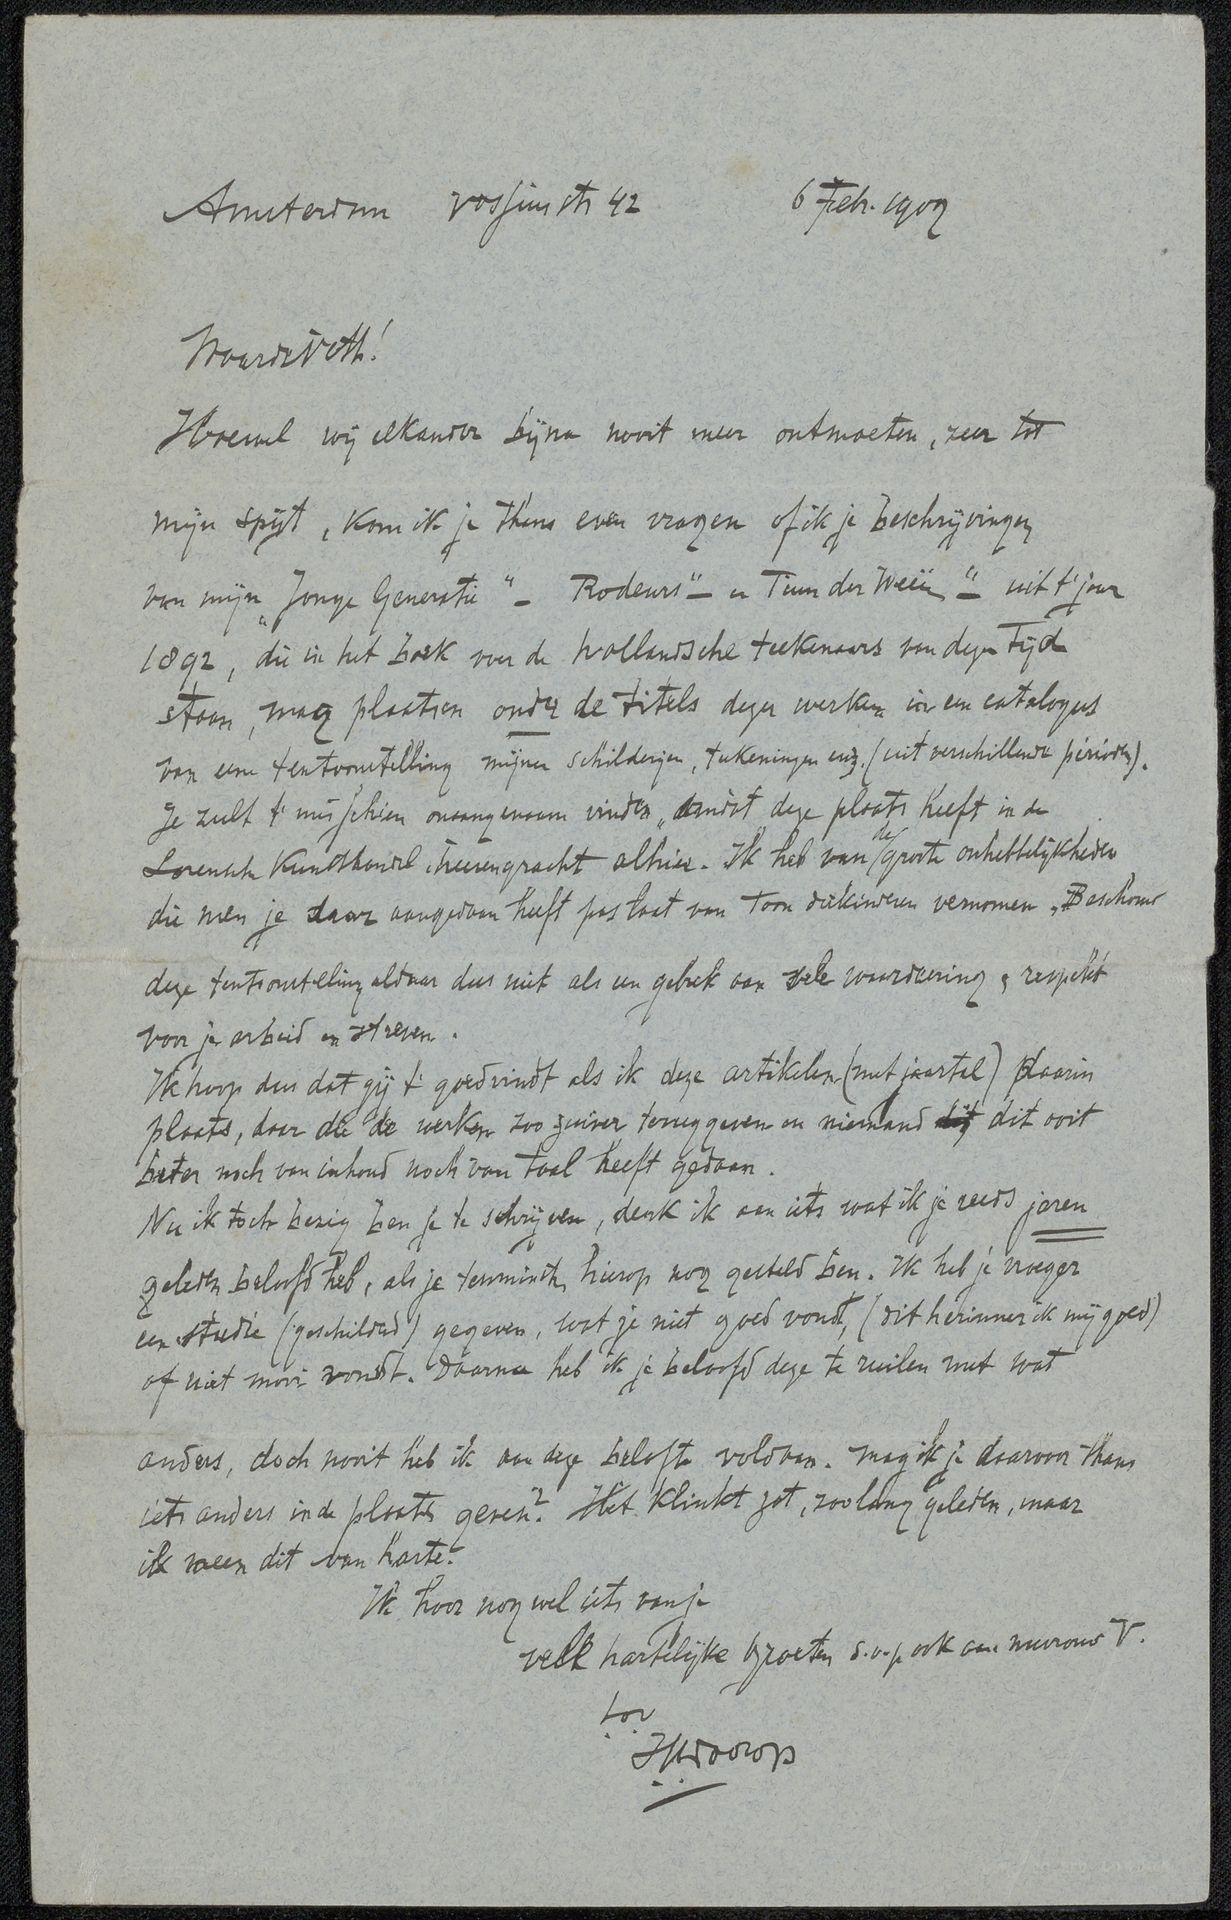 Amsterdam Vossiusstr 42 6 Feb. 1909
Waarde Veth!
Hoewel wij elkander bijna nooit meer ontmoeten, zeer tot
mijn spijt, kom ik je thans even vragen of ik je beschrijvingen
van mijn „Jonge Generatie" – Rodeurs" – en Tuin der Weeën" – uit 't jaar
1892, die in het boek over de hollandsche teekenaars van dezen tijd
staan, mag plaatsen onder de titels dezer werken in een catalogus
van eene tentoonstelling mijner schilderijen, teekeningen enz. (uit verschillende perioden).
Je zult 't misschien onaangenaam vinden, omdat deze plaats heeft in de
Kunsthandel Heerengracht alhier. Ik heb van de groote onhebbelijkheden
die men je daar aangedaan heeft pas laat van Toon Derkinderen vernomen. Beschouw
deze tentoonstelling aldaar dus niet als een gebrek aan vele waardeering & respekt
voor je arbeid en streven.
Ik hoop dus dat gij 't goedvindt als ik deze artikelen (met jaartal) daarin
plaats, daar die de werken zoo zuiver teruggeven en niemand dit ooit
beter noch van inhoud noch van taal heeft gedaan.
Nu ik toch bezig ben je te schrijven, denk ik aan iets wat ik je reeds jaren
geleden beloofd heb, als je tenminste hierop nog gesteld ben. Ik heb je vroeger
een studie (geschilderd) gegeven, wat je niet goed vondt, (dit herinner ik mij goed)
of niet mooi vondt. Daarna heb ik je beloofd deze te ruilen met wat
anders, doch nooit heb ik aan deze belofte voldaan. Mag ik je daarvoor thans
iets anders in de plaats geven? Het klinkt zot, zoo lang geleden, maar
ik meen dit van harte.
Ik hoor nog wel iets van je
veel hartelijke groeten s.v.p. ook aan mevrouw V.
tov
JThToorop